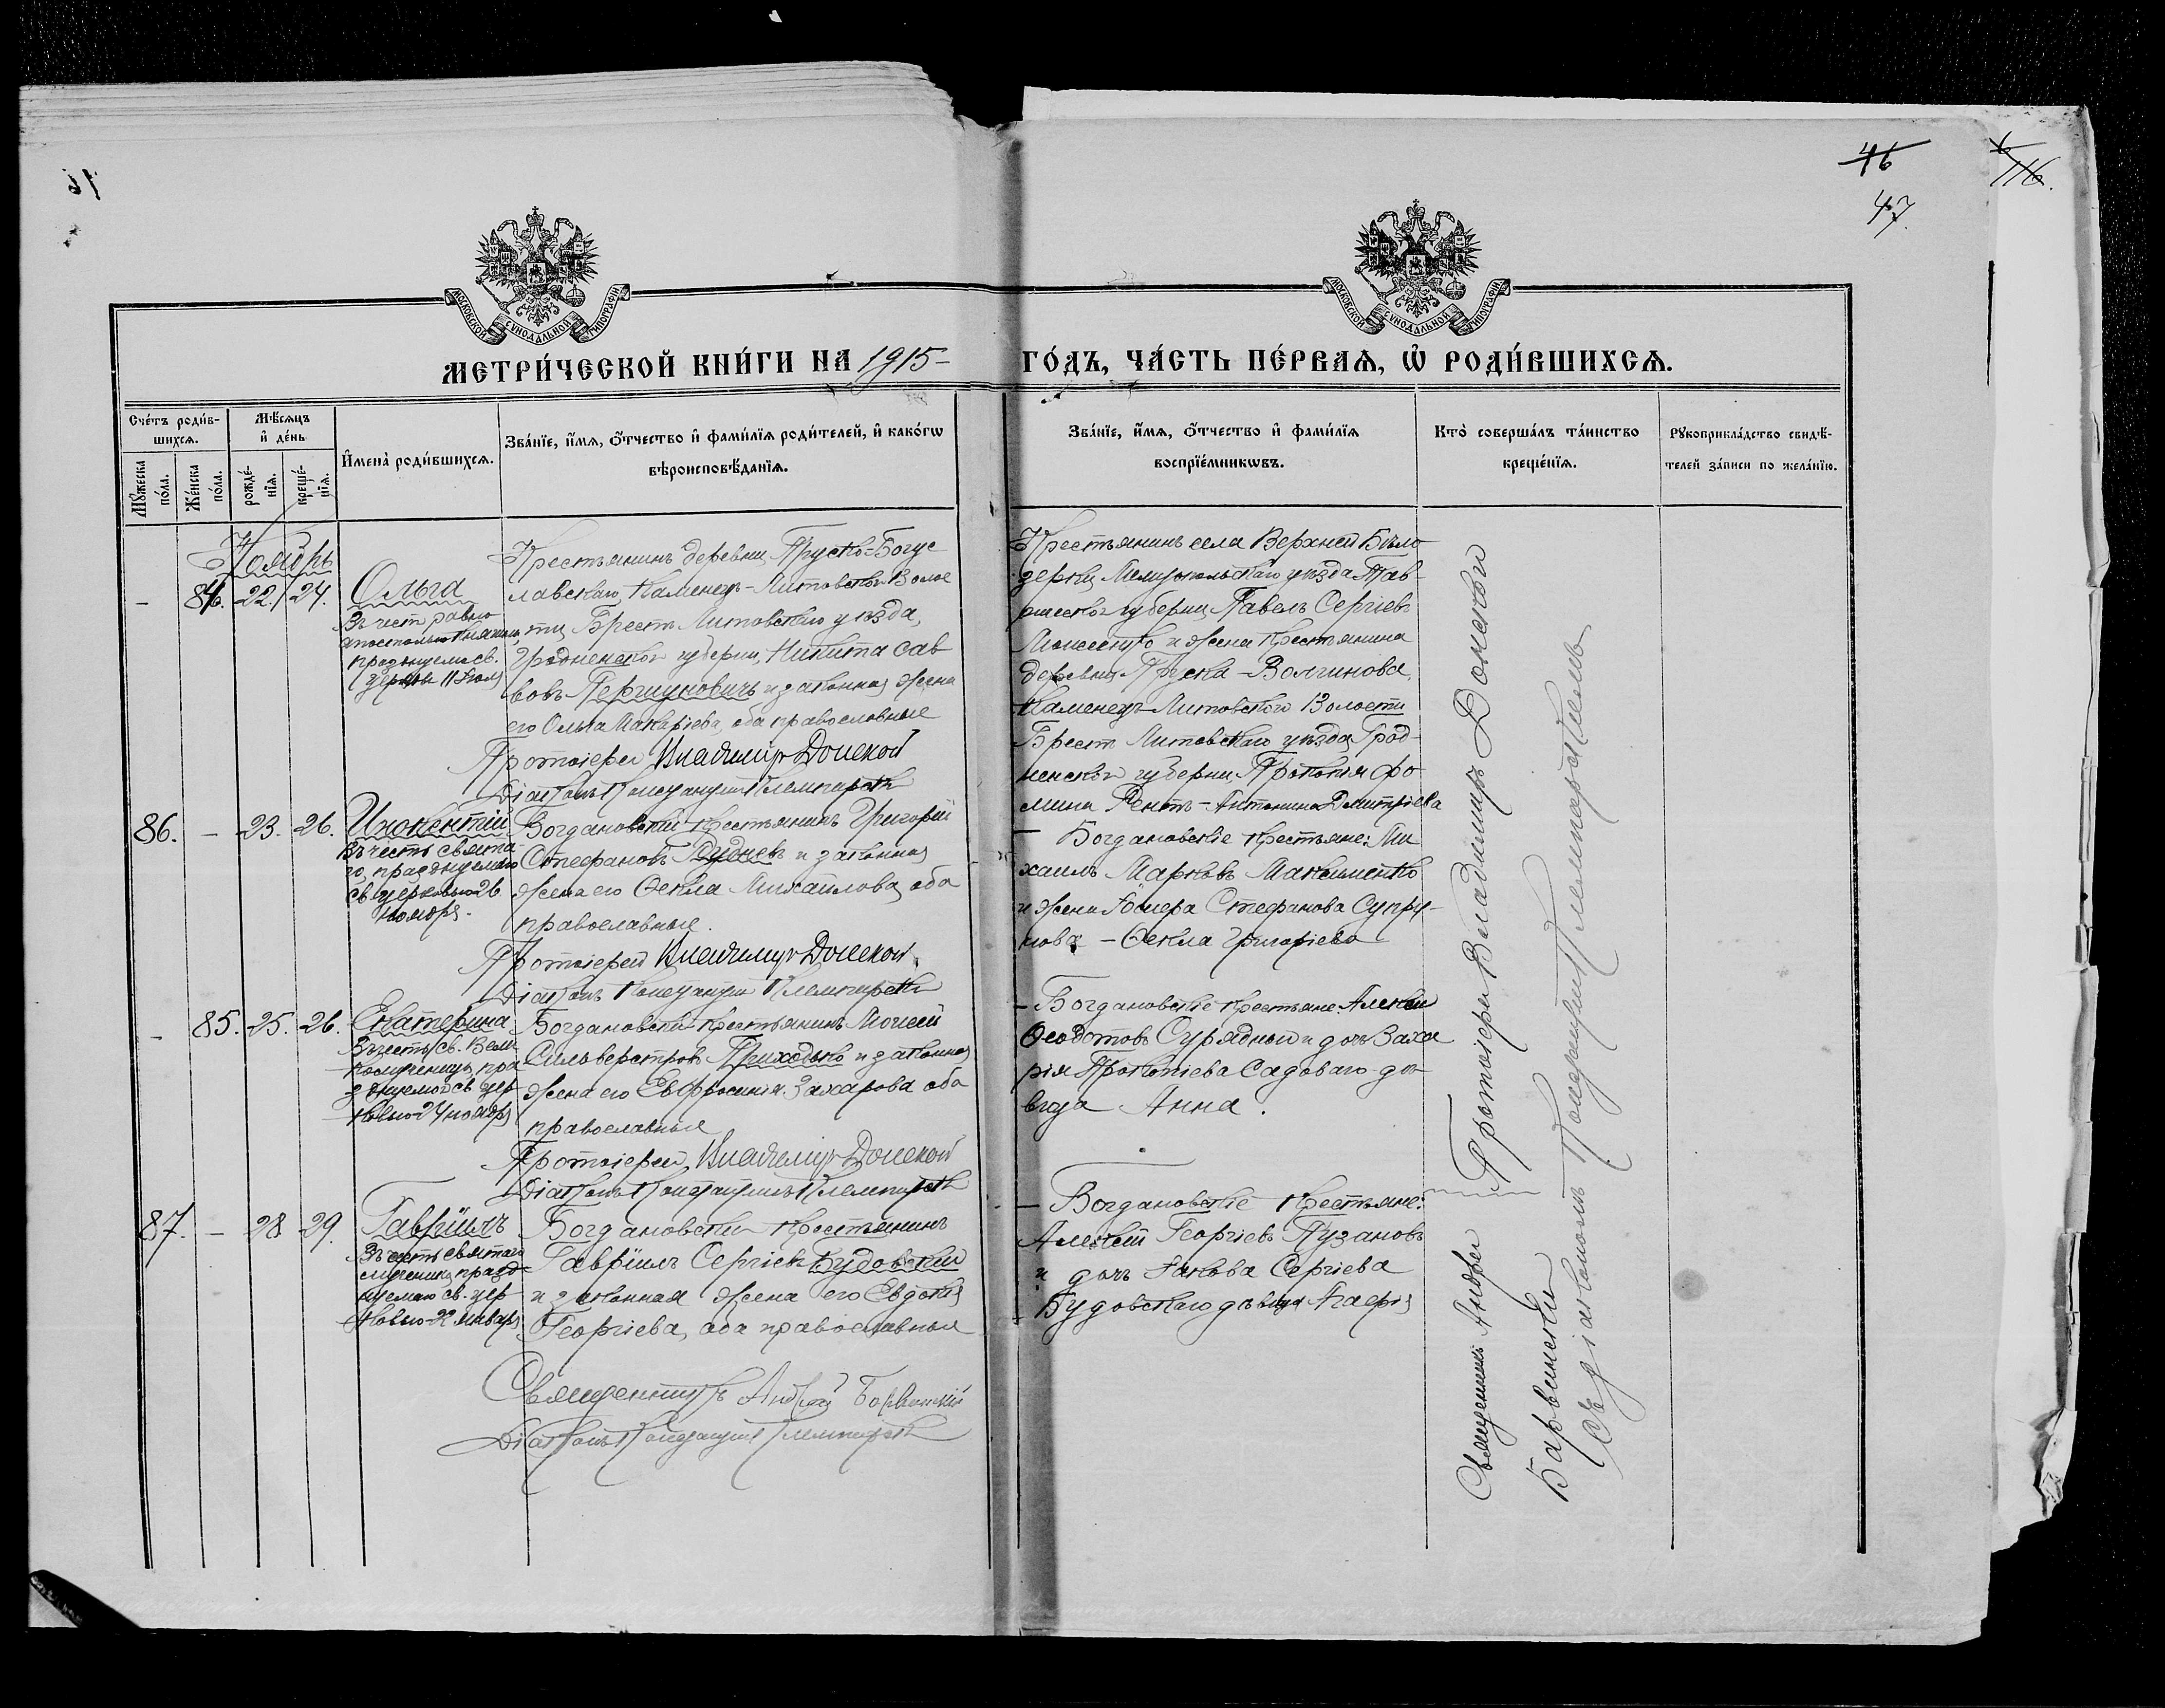 46
116.
47.
МОСКОВСКОЙ СѴНОДАЛЬНОЙ ТИПОГРАФІИ
МОСКОВСКОЙ СѴНОДАЛЬНОЙ ТИПОГРАФІИ
МЕТРИ́ЧЕСКОЙ КНИ́ГИ НА 1915 – ГО́ДЪ, ЧА́СТЬ ПЕ́РВАѦ, Ѽ РОДИ́ВШИХСѦ.
Сче́тъ роди́в-
шихсѧ.
Мѣ́сѧцъ
и҆ де́нь
Мꙋ́жеска
по́ла.
Же́нска
по́ла.
рожде́-
нїѧ.
креще́-
нїѧ.
И҆мена̀ роди́вшихсѧ.
Зва́нїе, и҆́мѧ, ѻ҆́тчество и҆ фами́лїѧ роди́телей, и҆ како́гѡ
вѣроисповѣ́данїѧ.
Зва́нїе, и҆́мѧ, ѻ҆́тчество и҆ фами́лїѧ
воспрїе́мникѡвъ.
Кто̀ соверша́лъ та́инство
креще́нїѧ.
Рꙋкоприкла́дство свидѣ́-
телей за́писи по жела́нїю.
Ноябрь
– 84. 22. 24.
Ольга
Въ чест равно
апостольн. княгини
празднуемо св.
церковью 11 Июля
Крестьянинъ деревни Пруско-Богус
лавскаго, Каменец-Литовской Волос
ти, Брест Литовскаго уѣзда,
Гродненской губерни, Никита Сав
вовъ Першуковичъ и законная жена
его Ольга Макаріева, оба православные
Протоіерей Владимір Донской
Діаконъ Конст­антин Клемпарскій
Крестьянинъ села Верхней Бѣло
зерки Мелитопольскаго уѣзда Тав-
рической губерни Павелъ Сергіевъ
Моисеенко и жена крестьянина
деревни Пруска-Волчинова,
Каменецъ-Литовской Волости
Брест Литовскаго уѣзда Грод-
ненской губерни Прокопія Фо
мина – Антонина Дмитріева
86. – 23. 26.
Инокентій
Въ честь свята-
го, празднуемаго
св церковью 26
Ноября.
Богдановскій крестьянинъ Григорій
Стефановъ Рудневъ и законная
жена его Ѳекла Михайлова, оба
православные.
Протоіерей Владимір Донской.
Діаконъ Константин Клемпарскій
– Богдановскіе крестьяне: Ми
хаилъ Марковъ Максименко
и жена Іосифа Стефанова Супру-
нова – Ѳекла Григоріева
– 85. 25. 26.
Екатерина
Въ честь св. Вели-
комученицы, пра
зднуемой св. цер-
ковью 24 ноября
Богдановскій крестьянинъ Моисей
Сильверстровъ Приходько и законная
жена его Евфросинія Захарова оба
православные
Протоіерей, Владимір Донской
Діаконъ Константинъ Клемпарскій
– Богдановскіе крестьяне: Алексѣй
Ѳеодотовъ Сурядный и дочь Заха
рія Прокопіева Садоваго дѣ-
вица Анна.
87. – 28 29.
Гавріилъ
Въ честь святаго
мученика, празд-
нуемаго св. цер-
ковью 22 Января
Богдановскій крестьянинъ
Гавріилъ Сергіевъ Будовскій
и законная жена его Евдокія
Георгіева, оба православные
Священникъ Андрей Барвинскій
Діаконъ Константин Клемпарскій
– Богдановскіе крестьяне:
Алексѣй Георгіевъ Пузановъ
и дочь Іакова Сергіева
Будовскаго дѣвица Агафія
Протоіерей Владиміръ Донской
Священникъ Андрей
Барвинскій
Съ діакономъ Константиномъ Клемпарскимъ